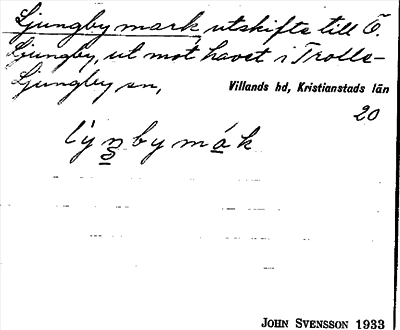 Ljungby mark utskifte till Ö.
Ljungby, ut mot havet i Trolle-
Ljungby sn,
Villands hd, Kristianstads län
20
lýn̠by mák
JOHN SVENSSON 1933